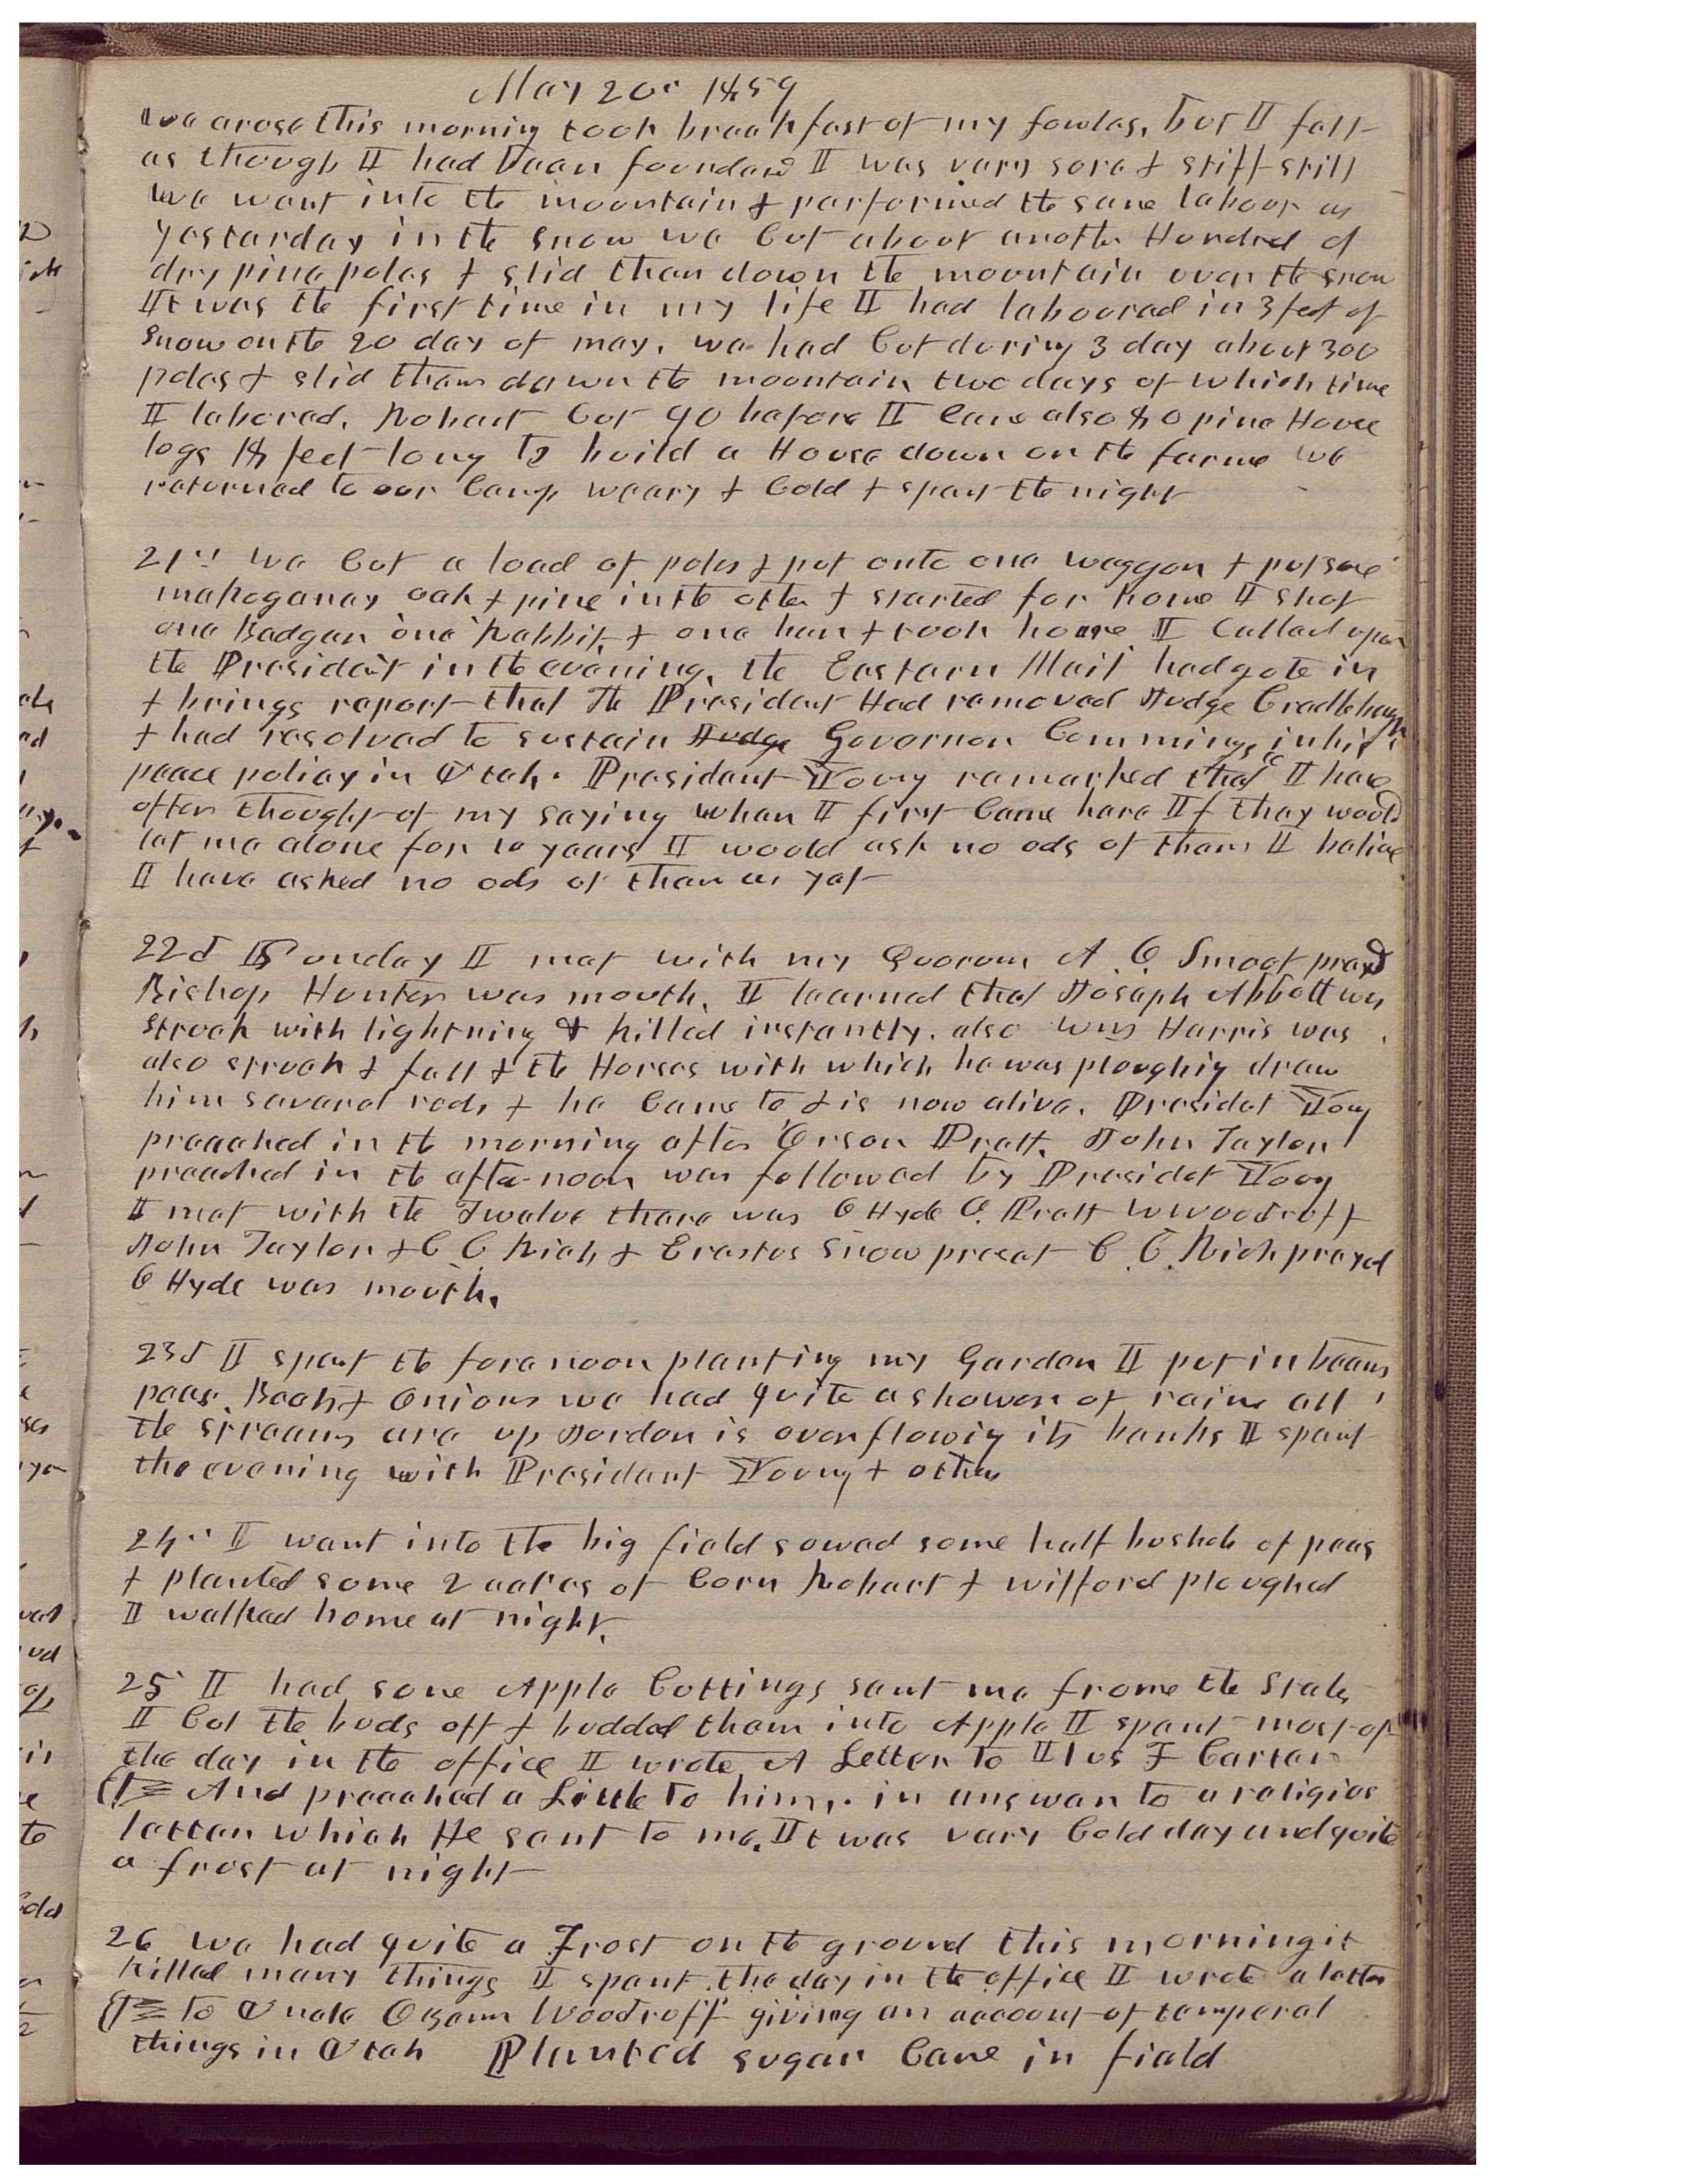 May 20th 1859
we arose this morning took breakfast of my fowles, but I felt
as though I had been foundered I was very sore & stiff still
we went into the mountain & performed the same labour as
yesterday in the snow we cut about another Hundred of
dry pine poles & slid them down the mountain over the snow
It was the first time in my life I had laboured in 3 feet of
snow on the 20 day of may. we had cut during 3 day about 300
poles & slid them down the mountain two days of which time
I labored. Robert cut 90 before I came also 80 pine House
logs 18 feet long to build a House down on the farme we
returned to our camp weary & cold & spent the night
21st we cut a load of poles & put onto one waggon & put some
mahoganay oak & pine into the other & started for home I shot
one Badger one Rabbit, & one hen & took home I called upon
the President in the evening, the Eastern Mail had gote in
& brings report that The President Had removed Judge Cradlebaugh
& had resolved to sustain Judge Governor Cumming, in his
peace policy in Utah. President Young remarked that I have
often thought of my saying when I first came here If they would
let me alone for 10 years I would ask no ods of them I believe
I have asked no ods of them as yet
22d Sunday I met with my Quorum A. O. Smoot prayed
Bishop Hunter was mouth. I learned that Joseph Abbott was
struck with lightning & killed instantly. also Wm Harris was
also struck & fell & the Horses with which he was ploughig drew
him several rods & he came to & is now alive. Presidet Young
preached in the morning after Orson Pratt. John Taylor
preached in the afternoon was followed by Presidet Young
I met with the Twelve there was O Hyde O. Pratt W Woodruff
John Taylor & C C Rich & Erastus Snow preset C. C. Rich prayed
O Hyde was mouth.
23d I spent the forenoon planting my Garden I put in beans
peas, Beets & onions we had quite a shower of raine all
the streams are up Jordon is overflowig its banks I spent
the evening with President Young & others
24th I went into the big field sowed some half bushels of peas
& planted some 2 acres of corn Robert & Wilford ploughed
I walked home at night.
25 I had some Apple cuttings sent me frome the States
I cut the buds off & budded them into Apple I spent most of
the day in the office I wrote A Letter to Ilus F Carter
And preached a Little to him,. in answer to a religios
letter which He sent to me. It was very cold day and quite
a frost at night
26 we had quite a Frost on the ground this morning it
killed many things I spent the day in the office I wrote a letter
to Uncle Ozem Woodruff giving an account of temporal
things in Utah Planted sugar cane in field